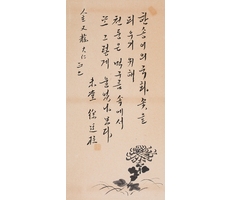 한 송이의 국화꽃을
피우기 위해
천둥은 먹구름 속에서
또 그렇게 울었나 보다
未堂 徐廷柱